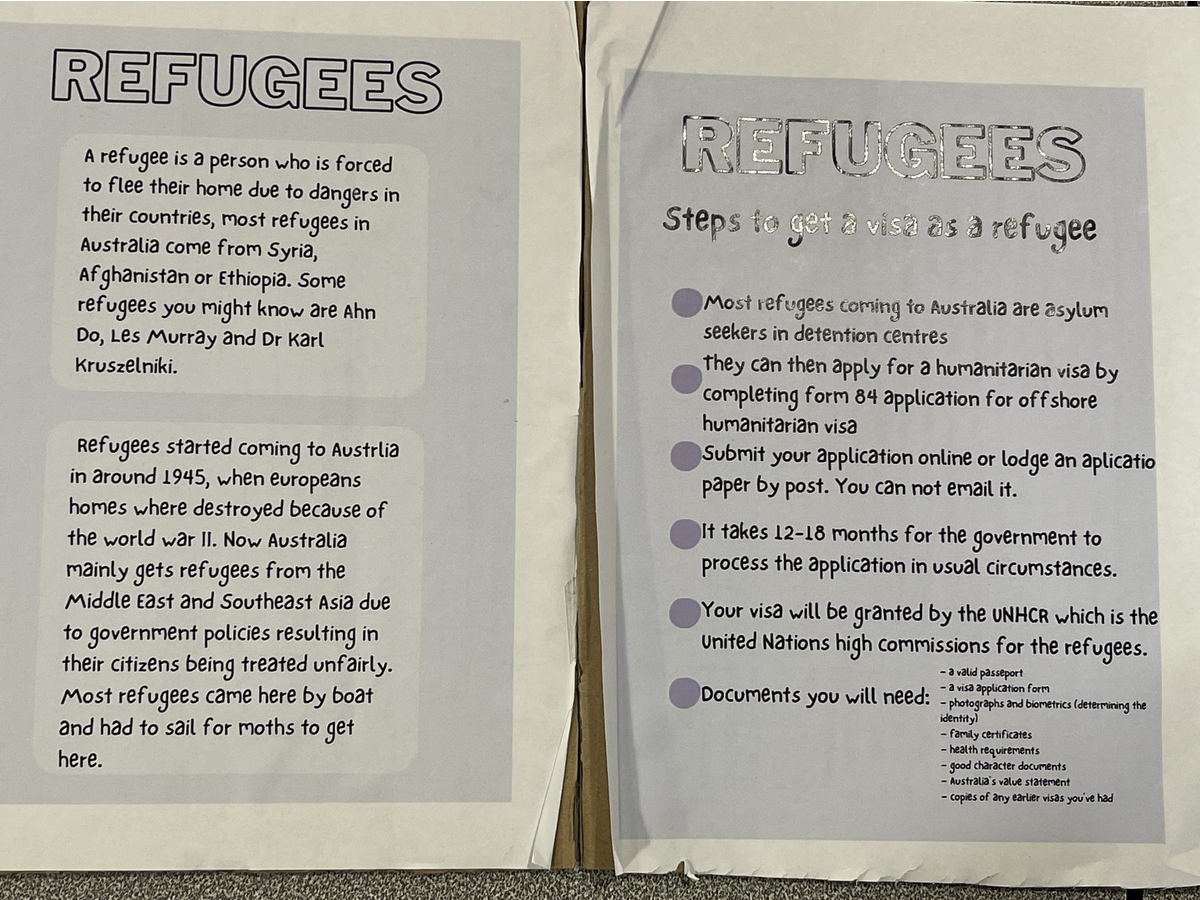 REFUGEES
A refugee is a person who is forced
to flee their home due to dangers in
their countries, most refugees in
Australia come from Syria,
Afghanistan or Ethiopia. Some
refugees you might know are Ahn
Do, Les Murray and Dr Karl
Kruszelniki.
Refugees started coming to Austrlia
in around 1945, when europeans
homes where destroyed because of
the world war II. Now Australia
mainly gets refugees from the
Middle East and Southeast Asia due
to government policies resulting in
their citizens being treated unfairly.
Most refugees came here by boat
and had to sail for moths to get
here.
REFUGEES
Steps to get a visa as a refugee
Most refugees coming to Australia are asylum
seekers in detention centres
They can then apply for a humanitarian visa by
completing form 84 application for offshore
humanitarian visa
Submit your application online or lodge an aplicatio
paper by post. You can not email it.
It takes 12-18 months for the government to
process the application in usual circumstances.
Your visa will be granted by the UNHCR which is the
United Nations high commissions for the refugees.
Documents you will need:
- a valid passeport
- a visa application form
- photographs and biometrics (determining the
identity)
- family certificates
- health requirements
- good character documents
- Australia's value statement
- copies of any earlier visas you've had